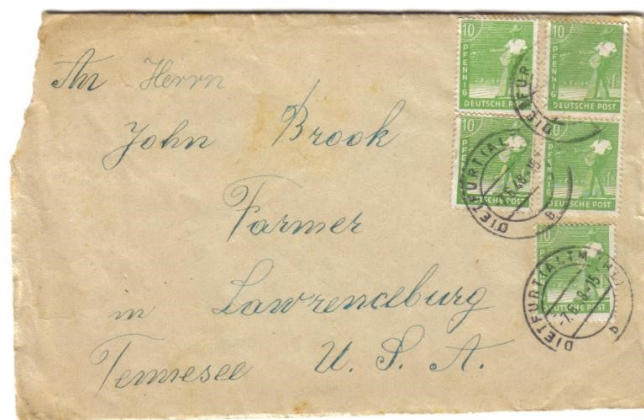 An Herrn
John Brook
Farmer
in Lawrenceburg
Tennesee U. S. A.
10 PFENNIG DEUTSCHE POST
10 PFENNIG DEUTSCHE POST
10 PFENNIG DEUTSCHE POST
DEUTSCHE POST
10 DEUTSCHE POST
DIETFURT
DIETFURT(ALTM
DIETFURT(ALTM